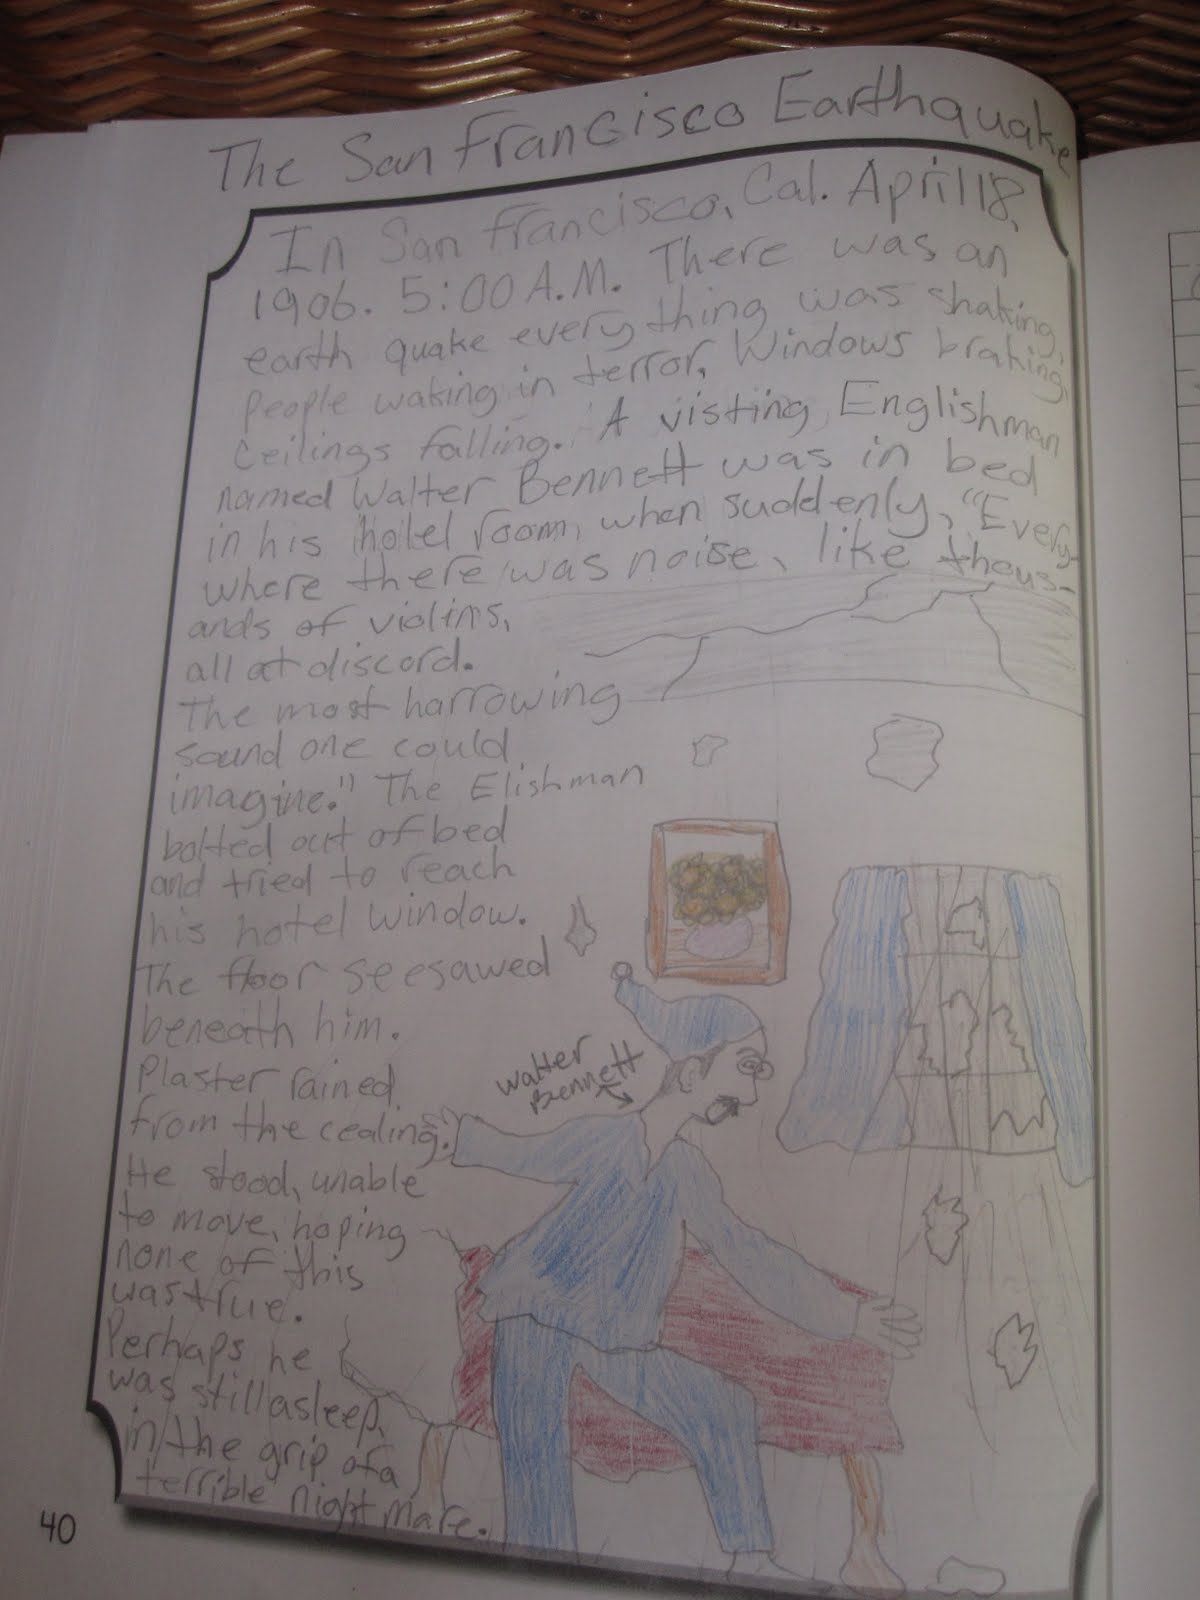 The San Francisco Earthquake
In San Francisco, Cal. April 18,
1906. 5:00 A.M. There was an
earth quake every thing was shaking,
People waking in terror, Windows braking,
Ceilings falling. A visting Englishman
named Walter Bennett was in bed
in his hotel room, when suddenly, "Every-
where there was noise, like thous-
ands of violins,
all at discord.
The most harrowing
sound one could
imagine." The Elishman
bolted out of bed
and tried to reach
his hotel window.
The floor seesawed
beneath him.
Plaster rained
from the cealing.
He stood, unable
to move, hoping
none of this
was true.
Perhaps he
was still asleep,
in the grip of a
terrible night mare.
Walter
Bennett
40